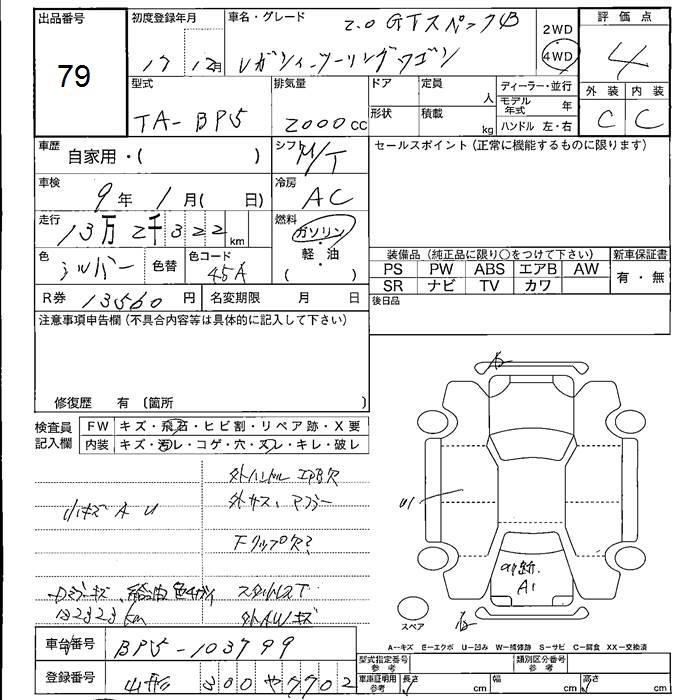 出品番号
79
初度登録年月
17 12月
車名・グレード
2.0 GTスペックB
レガシィ・ツーリングワゴン
2WD
4WD
評価点
4
外装 内装
C C
型式
TA-BP5
排気量
2000cc
ドア
形状
定員 人
積載 kg
ディーラー・並行
モデル年式 年
ハンドル 左・右
車歴 自家用・( )
シフト M/T
セールスポイント(正常に機能するものに限ります)
車検 9年 1月(日)
冷房 AC
走行 13万2千322km
燃料
ガソリン
・
軽・油
( )
色 シルバー 色替
色コード 45A
装備品(純正品に限り○をつけて下さい)
PS PW ABS エアB AW
SR ナビ TV カワ
新車保証書
有・無
R券 13560円 名変期限 月 日
後日品
注意事項申告欄(不具合内容等は具体的に記入して下さい)
修復歴 有(箇所 )
検査員記入欄
FW キズ・飛石・ヒビ割・リペア跡・X要
内装 キズ・汚レ・コゲ・穴・スレ・キレ・破レ
外ハンドル エアB欠
小キズ A U
外サス、マフラー
Fリップ欠?
132323km
外AWキズ
U1
A1
スペア
A--キズ E--エクボ U--凹み W--補修跡 S--サビ C--腐食 XX--交換済
車台番号 BP5-103799
登録番号 山形 300 や 7702
型式指定番号 参考
類別区分番号 参考
車庫証明用 参考
長さ cm 幅 cm 高さ cm